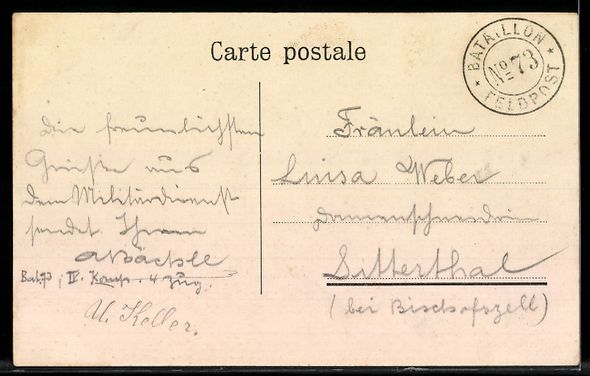 Carte postale
BATAILLON
No 73
FELDPOST
Die freundlichsten
Grüsse aus
dem Militärdienst
sendet Ihnen
A Bächle
Bat. 73, IV. Komp. 4 Zug.
U. Keller.
Fräulein
Luisa Weber
Damenschneiderin
Sitterthal
(bei Bischofszell)